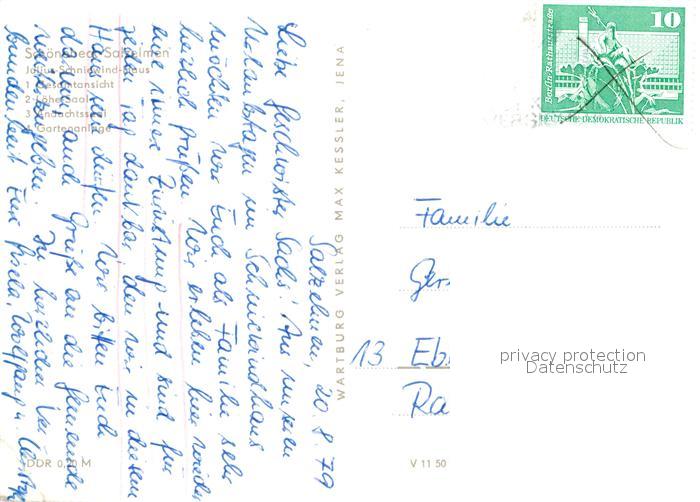 Schönebeck-Salzelmen
Julius-Schniewind-Haus
1 Gesamtansicht
2 Löhesaal
3 Andachtssaal
4 Gartenanlage
DDR 0,20 M
WARTBURG VERLAG MAX KESSLER, JENA
V 11 50
Berlin-Rathausstraße
10
DEUTSCHE DEMOKRATISCHE REPUBLIK
Salzelmen, 20. 8. 79
Liebe Geschwister Sachs! Aus unseren
Urlaubstagen im Schniewindhaus
möchten wir Euch als Familie sehr
herzlich grüßen. Wir erleben hier wieder
eine innere Zurüstung und sind für
jeden Tag dankbar, den wir in diesem
Hause sein dürfen. Wir bitten Euch
damit auch Grüße an die Gemeinde
weiterzugeben. In herzlicher Ver-
bundenheit Eure Gisela, Wolfgang u.
Familie
Ger
13 Eb
Ra
privacy protection
Datenschutz